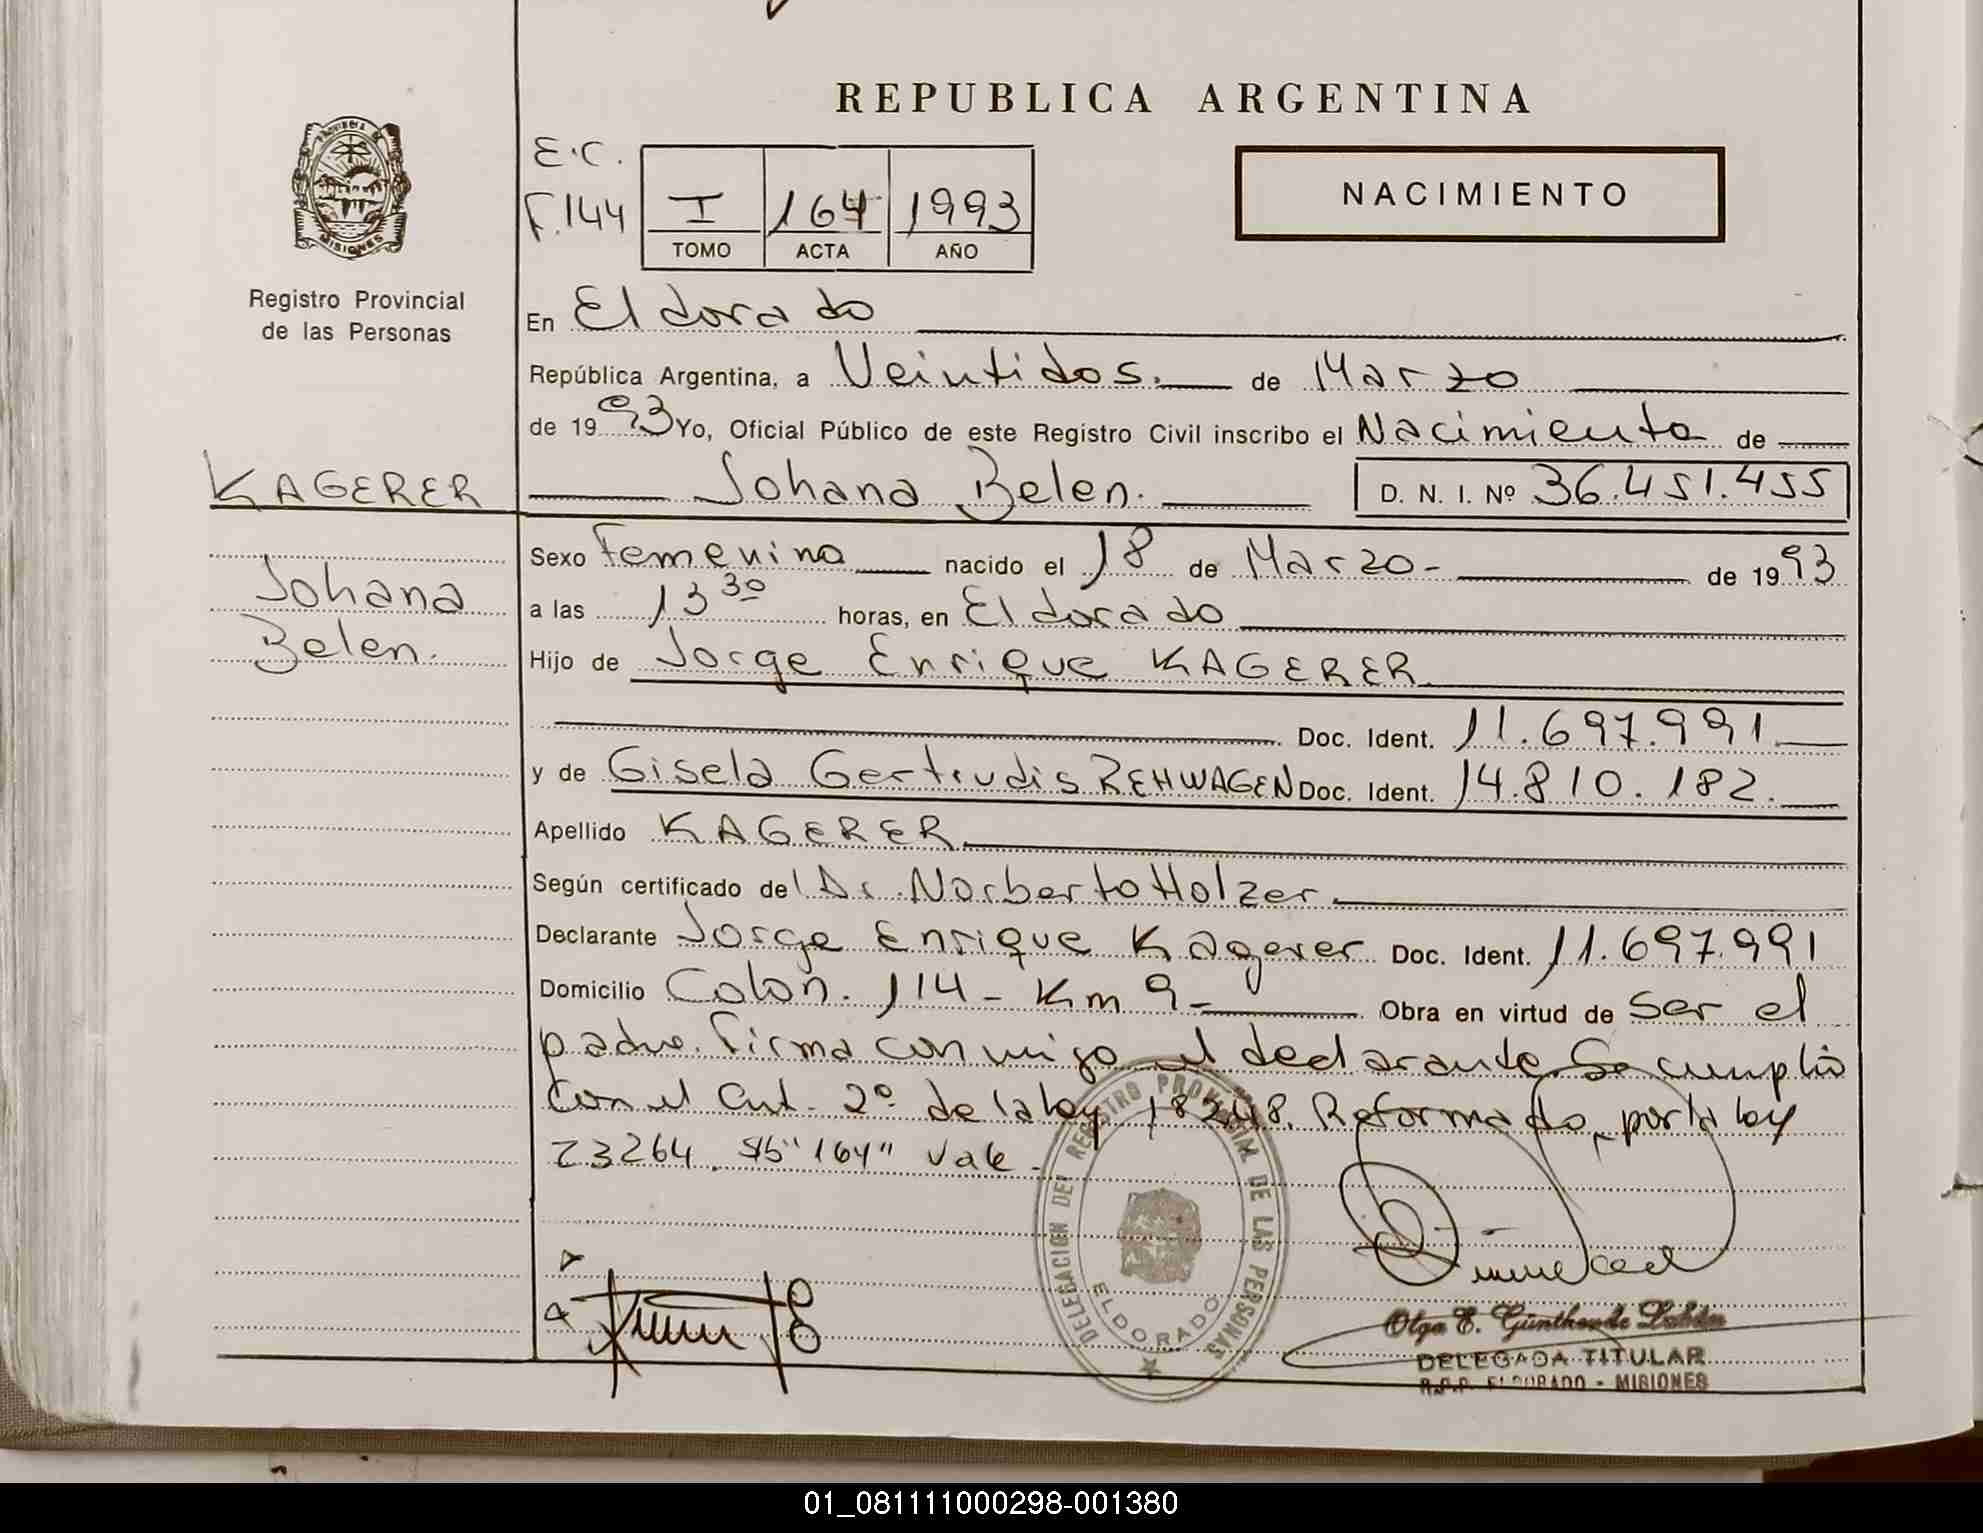 REPUBLICA ARGENTINA
PROVINCIA DE
MISIONES
Registro Provincial
de las Personas
E.C.
F.144
I 164 1993
TOMO ACTA AÑO
NACIMIENTO
En Eldorado
República Argentina, a Veintidos. de Marzo
de 1993 Yo, Oficial Público de este Registro Civil inscribo el Nacimiento de
KAGERER
Johana Belen. D. N. I. Nº 36.451.455
Johana
Belen.
Sexo Femenino nacido el 18 de Marzo - de 1993
a las 13 30 horas, en Eldorado
Hijo de Jorge Enrique KAGERER
Doc. Ident. 11.697.991
y de Gisela Gertrudis REHWAGEN Doc. Ident. 14.810.182.
Apellido KAGERER
Según certificado del Dr. Norberto Holzer
Declarante Jorge Enrique Kagerer Doc. Ident. 11.697.991
Domicilio Colon. 114 - Km 9 - Obra en virtud de ser el
padre. Firma conmigo el declarante. Se cumplio
con el Art. 2º de la ley 18248. Reformado por la ley
23264. S/b "164" Vale.
DELEGACION DEL REGISTRO PROVINCIAL DE LAS PERSONAS
ELDORADO
Olga E. Günther de
DELEGADA TITULAR
R.P.P. ELDORADO - MISIONES
01_081111000298-001380